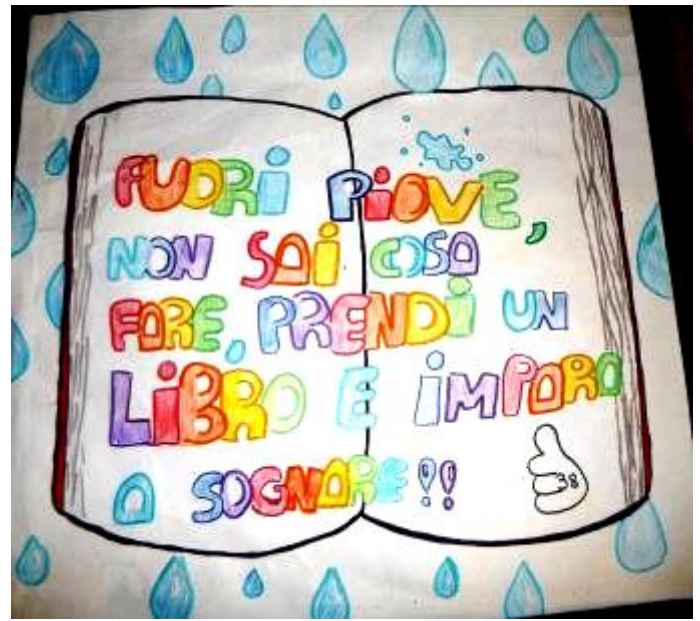 FUORI PIOVE,
NON SAI COSA
FARE, PRENDI UN
LIBRO E IMPARA
A SOGNARE!!
38